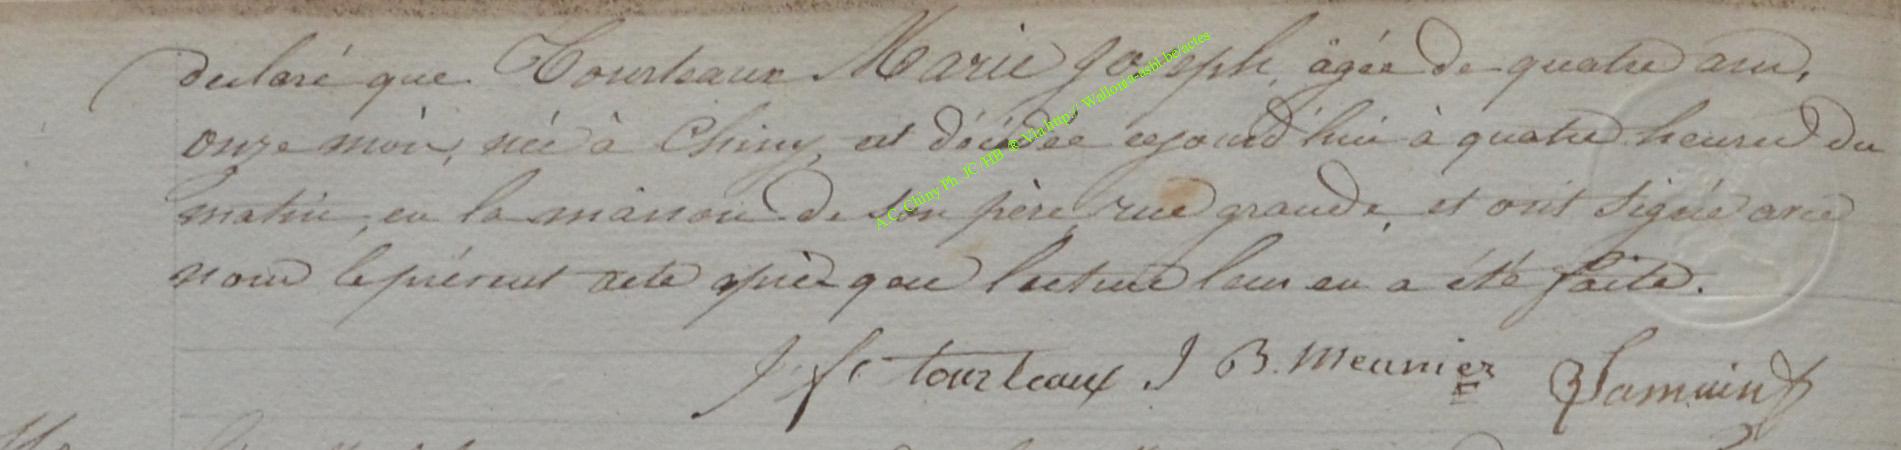 declaré que Tourteaux Marie Joseph, âgée de quatre ans,
onze mois, née à Chiny, est décédée cejourd'hui à quatre heures du
matin, en la maison de son père, rue grande, et ont signé avec
nous le présent acte après que lecture leur en a été faite.
J f tourteaux J B. Meunier
A.C. Chiny Ph. JC/HB & Via http://Wallonia-asbl.be/actes